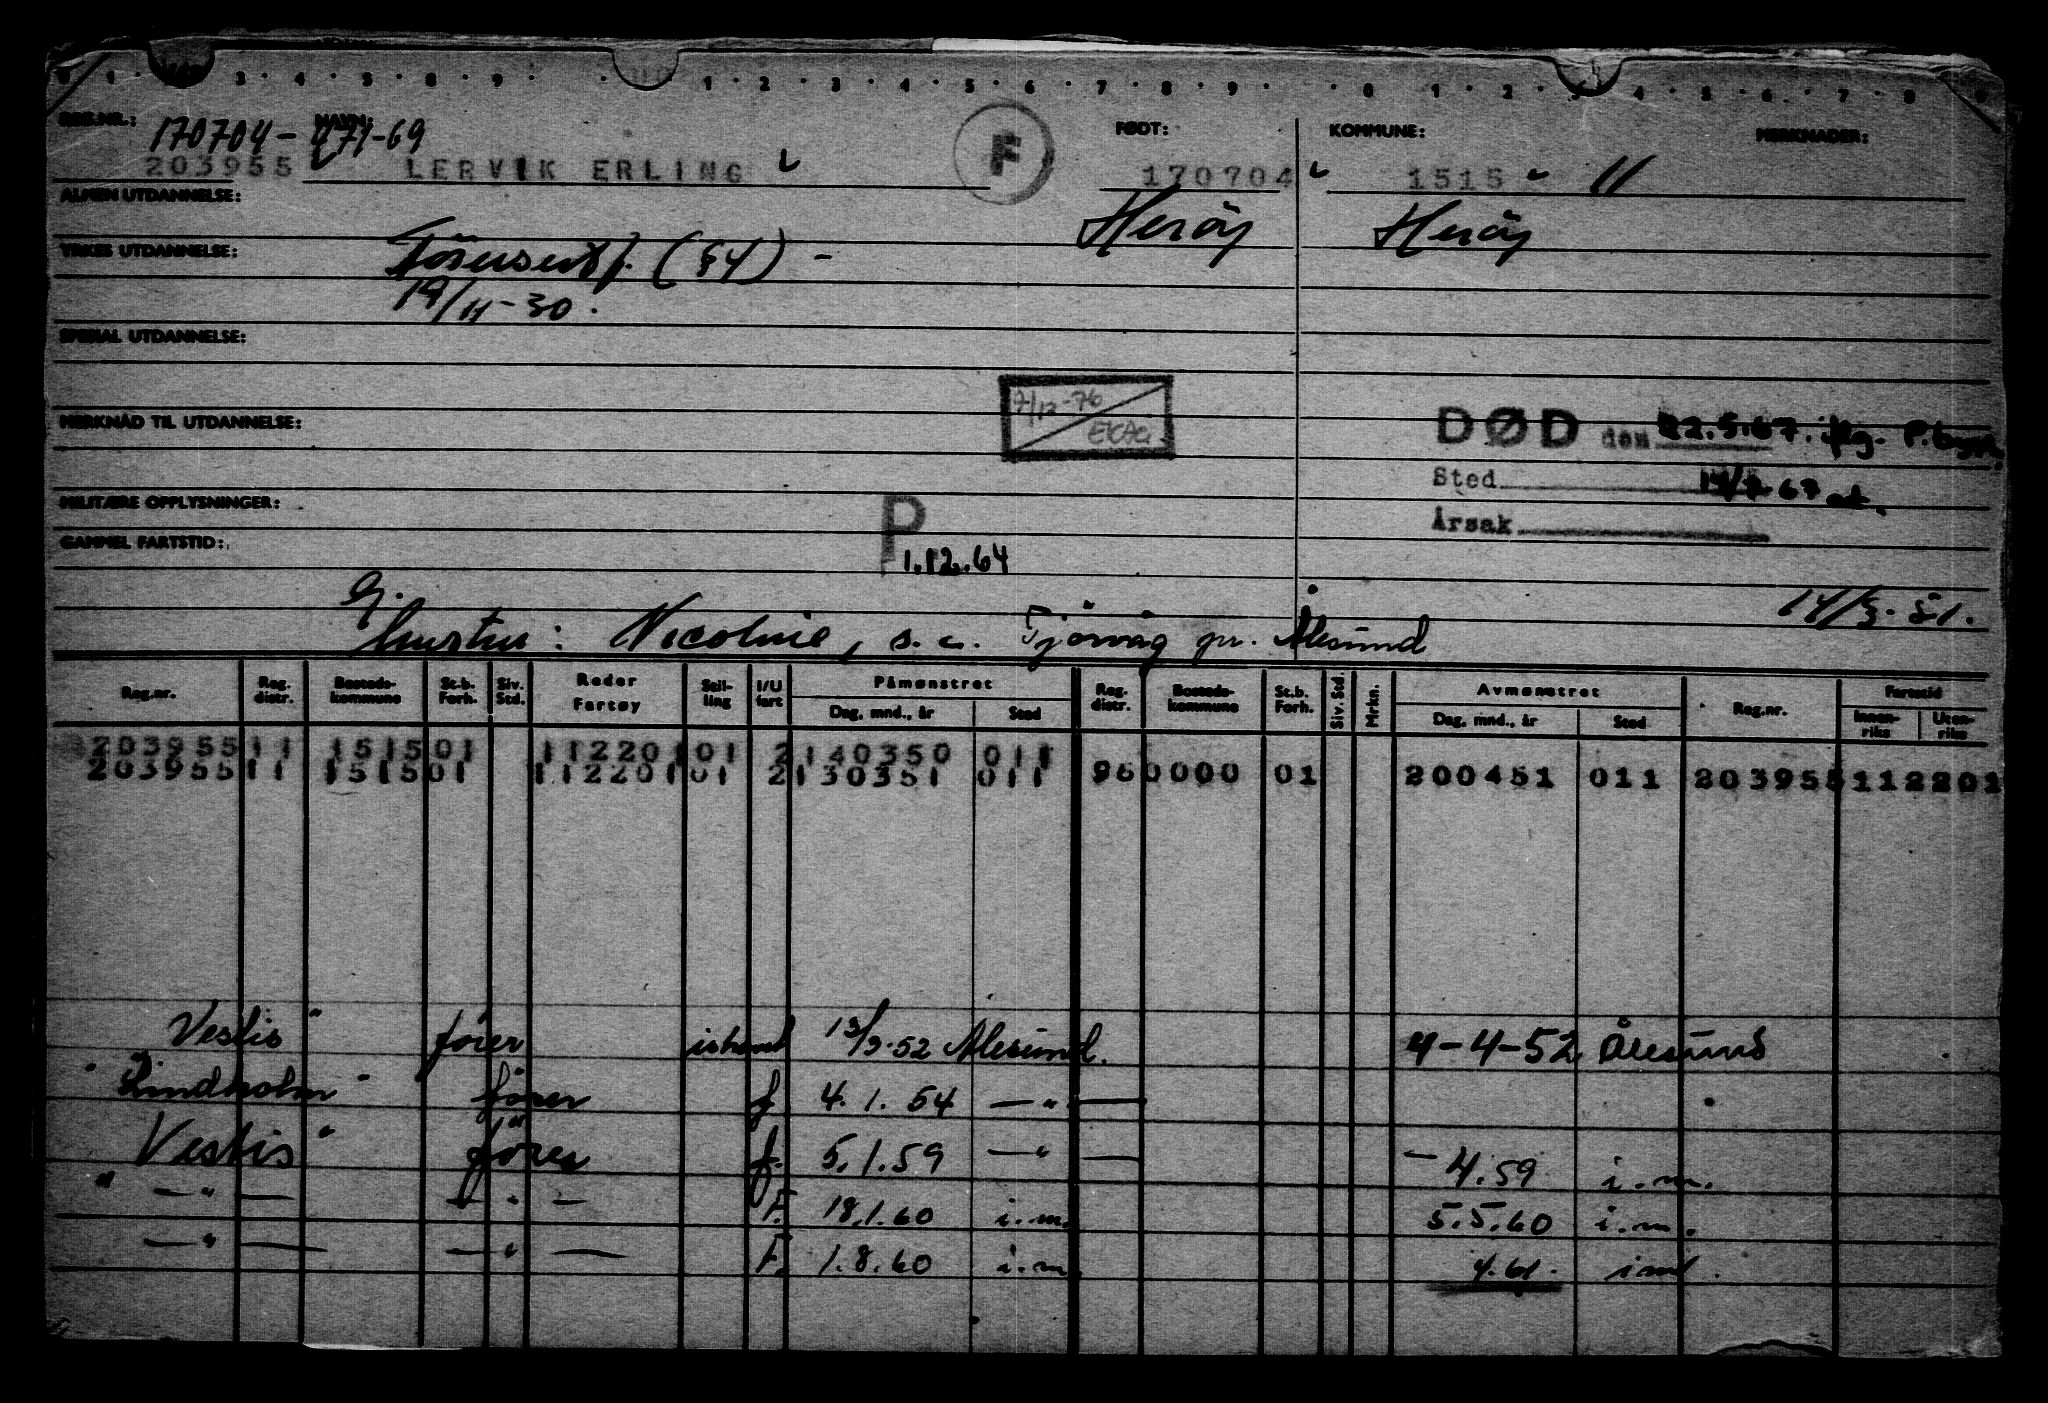 0 1 3 4 5 8 9 1 2 3 4 5 6 7 8 9 0 1 2 3 4 5 6 7 8 9
REG.NR.: 170704 - 471-69 NAVN: F FØDT: KOMMUNE: MERKNADER:
203955 LERVIK ERLING 170704 1515 11
ALMEN UTDANNELSE: Heröy Heröy
YRKES UTDANNELSE: Förersertf. (§4) -
19/11-30.
SPESIAL UTDANNELSE:
7/12-76
MERKNAD TIL UTDANNELSE: DØD den 22.5.67. iflg.
Sted 67
MILITÆRE OPPLYSNINGER: P
Årsak
GAMMEL FARTSTID: 1.12.64
G. 14/3-51.
hustru: Nicoline, s.a. Tjörvåg pr. Ålesund
Reg.nr. Reg. distr. Bosteds- kommune St.b. Forh. Siv. Std. Reder Fartøy Stil- ling I/U fart Påmønstret Dag, mnd., år Sted Reg. distr. Bosteds- kommune St.b. Forh. Siv. Std. Mrkn. Avmønstret Dag, mnd., år Sted Reg.nr. Fartstid Innen- riks Uten- riks
203955 11 1515 01 112201 01 2 140350 011
203955 11 1515 01 112201 01 2 130351 011 96 0000 01 200451 011 203955 112201
Vestis" förer ishavet 13/3-52 Ålesund. 4-4-52 Ålesund
"Lindholm" förer f 4.1.54 — " —
"Vestis" förer f. 5.1.59 — " — - 4.59 i.m.
— " — — " — F. 18.1.60 i.m. 5.5.60 i.m.
— " — — " — F. 1.8.60 i.m. 4.61. imt.